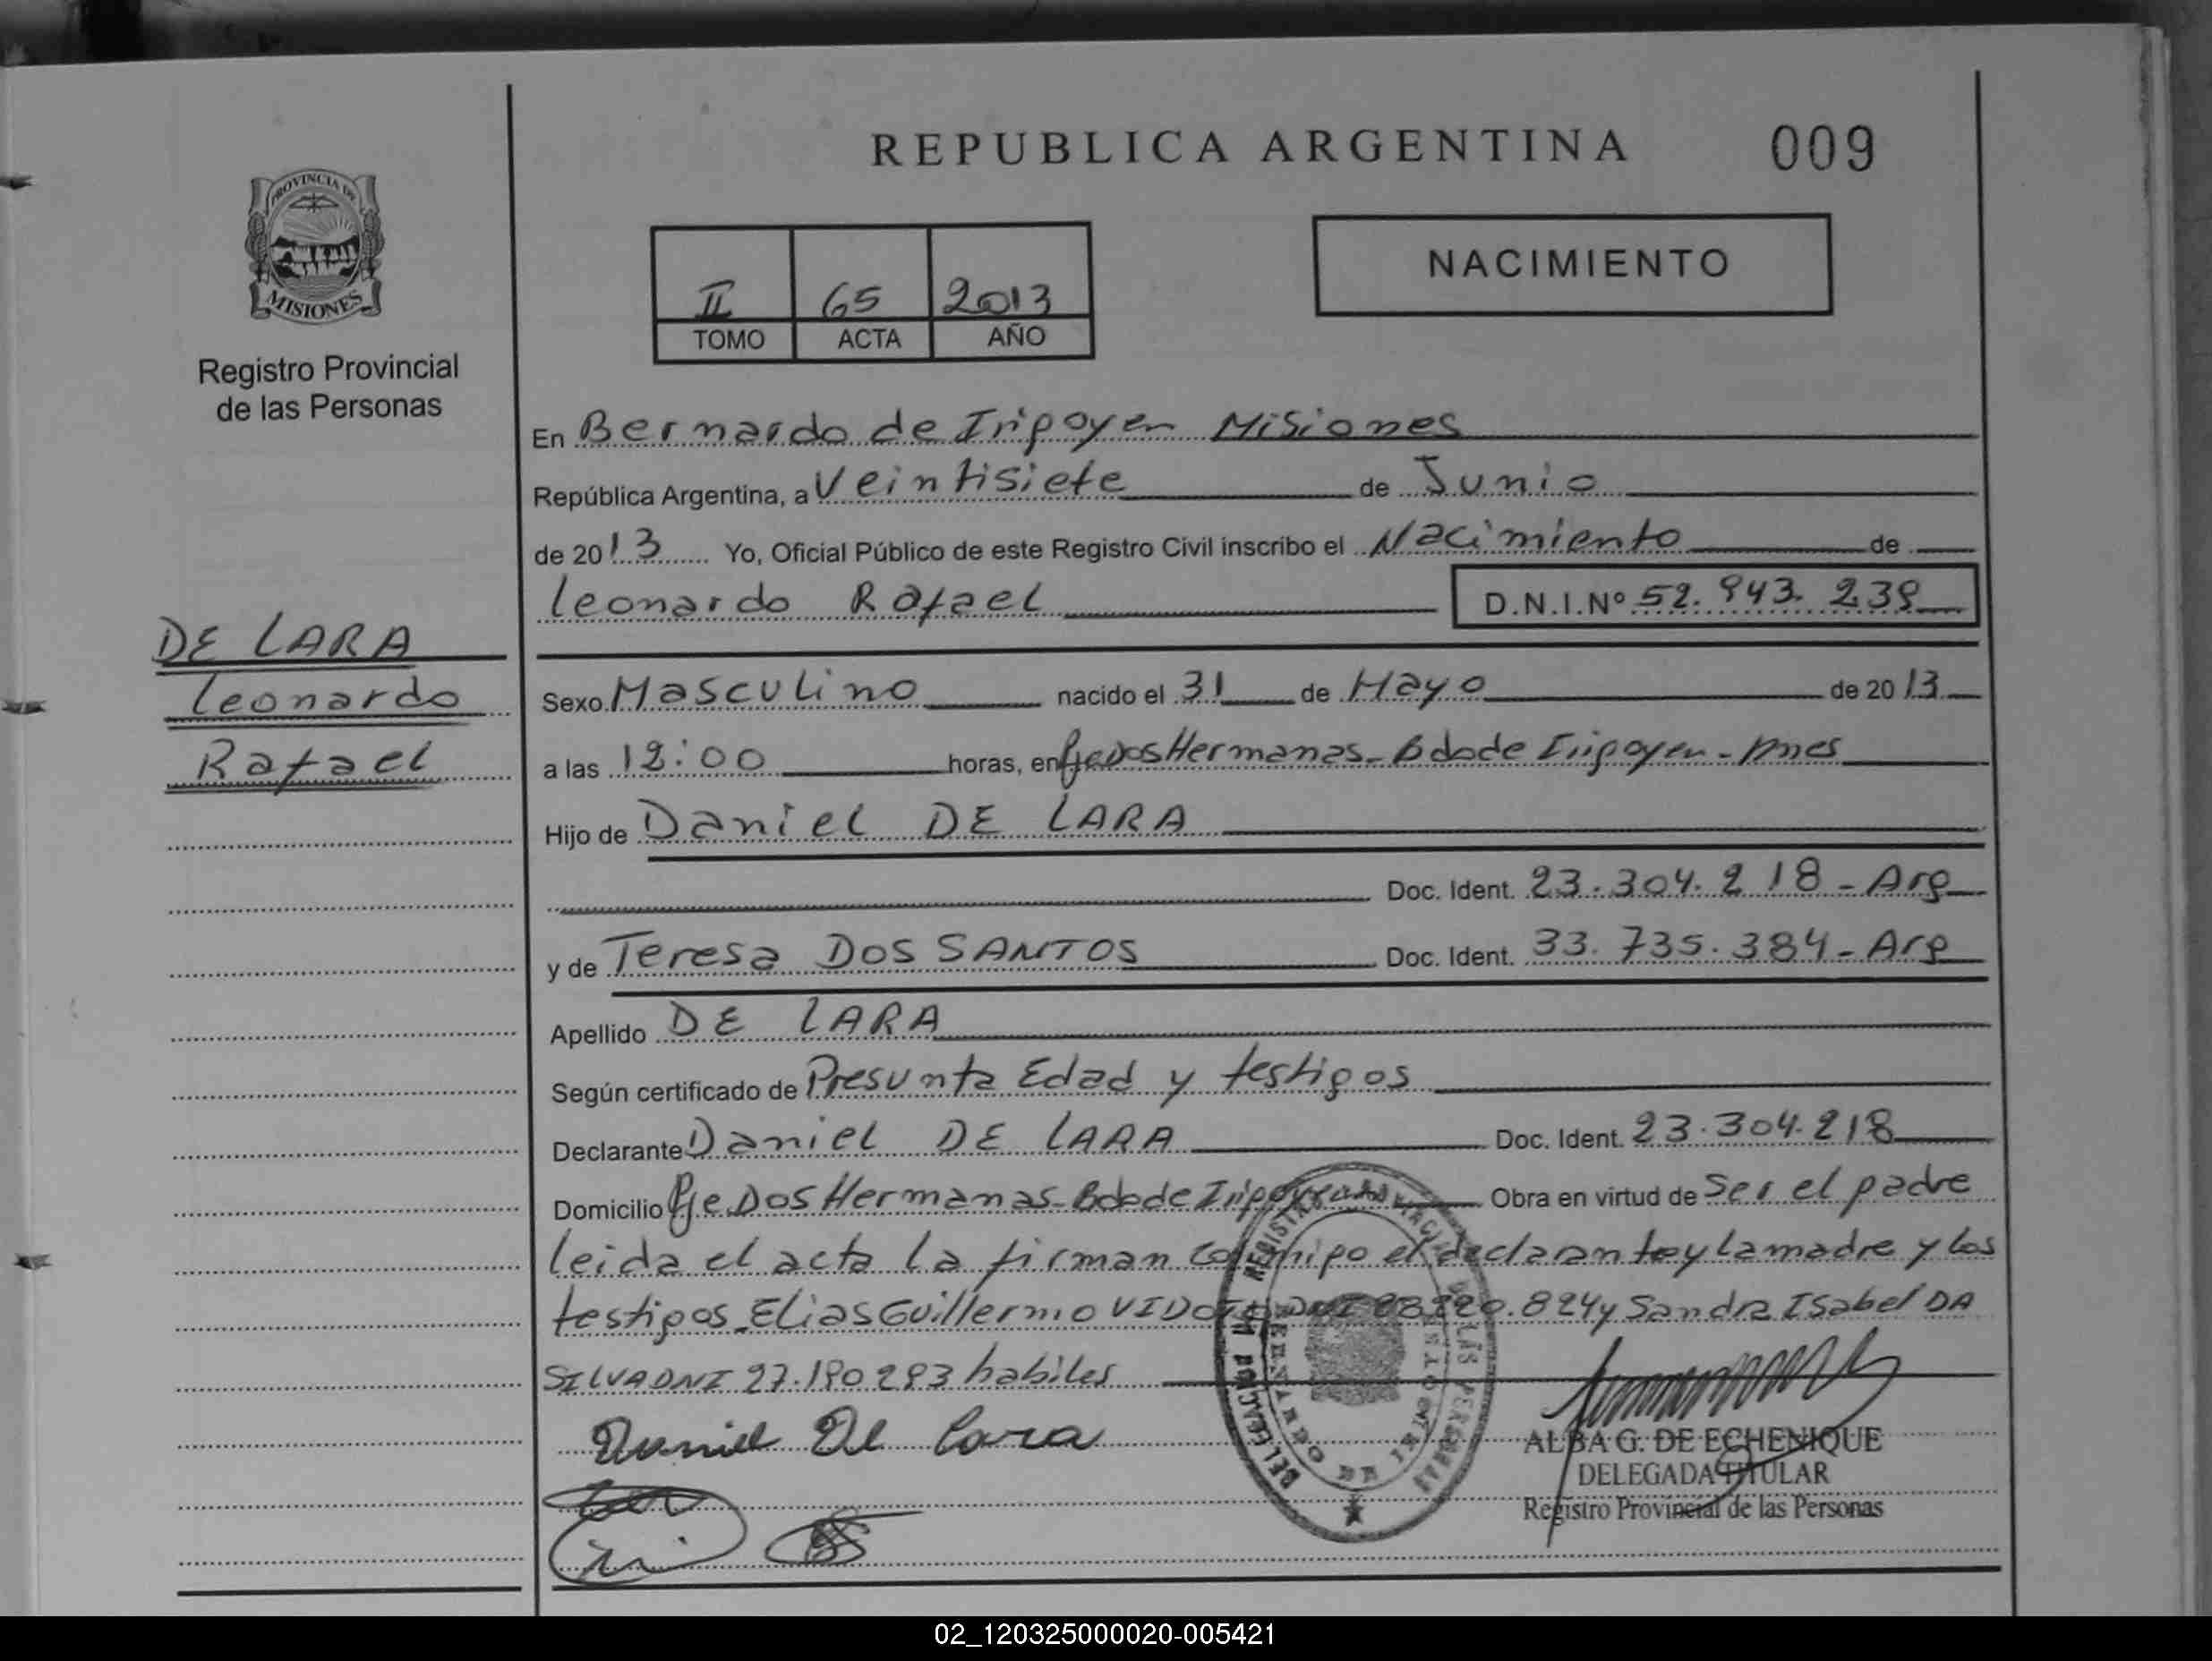 REPUBLICA ARGENTINA 009
PROVINCIA DE
MISIONES
Registro Provincial
de las Personas
NACIMIENTO
II 65 2013
TOMO ACTA AÑO
DE LARA
Leonardo
Rafael
En Bernardo de Irigoyen Misiones
República Argentina, a Veintisiete de Junio
de 2013 Yo, Oficial Público de este Registro Civil inscribo el Nacimiento de
Leonardo Rafael D.N.I.Nº 52.943.239
Sexo Masculino nacido el 31 de Mayo de 2013
a las 12:00 horas, en Pje Dos Hermanas - Bdo de Irigoyen - Mnes
Hijo de Daniel DE LARA
Doc. Ident. 23.304.218 - Arg
y de Teresa DOS SANTOS Doc. Ident. 33.735.384 - Arg
Apellido DE LARA
Según certificado de Presunta Edad y testigos
Declarante Daniel DE LARA Doc. Ident. 23.304.218
Domicilio Pje Dos Hermanas - Bdo de Irigoyen Obra en virtud de Ser el padre
leida el acta la firman conmigo el declarante y la madre y los
testigos Elias Guillermo DNI y Sandra Isabel DA
SILVA DNI 27.190.293 habiles
Daniel De Lara
ALBA G. DE ECHENIQUE
DELEGADA TITULAR
Registro Provincial de las Personas
02_120325000020-005421